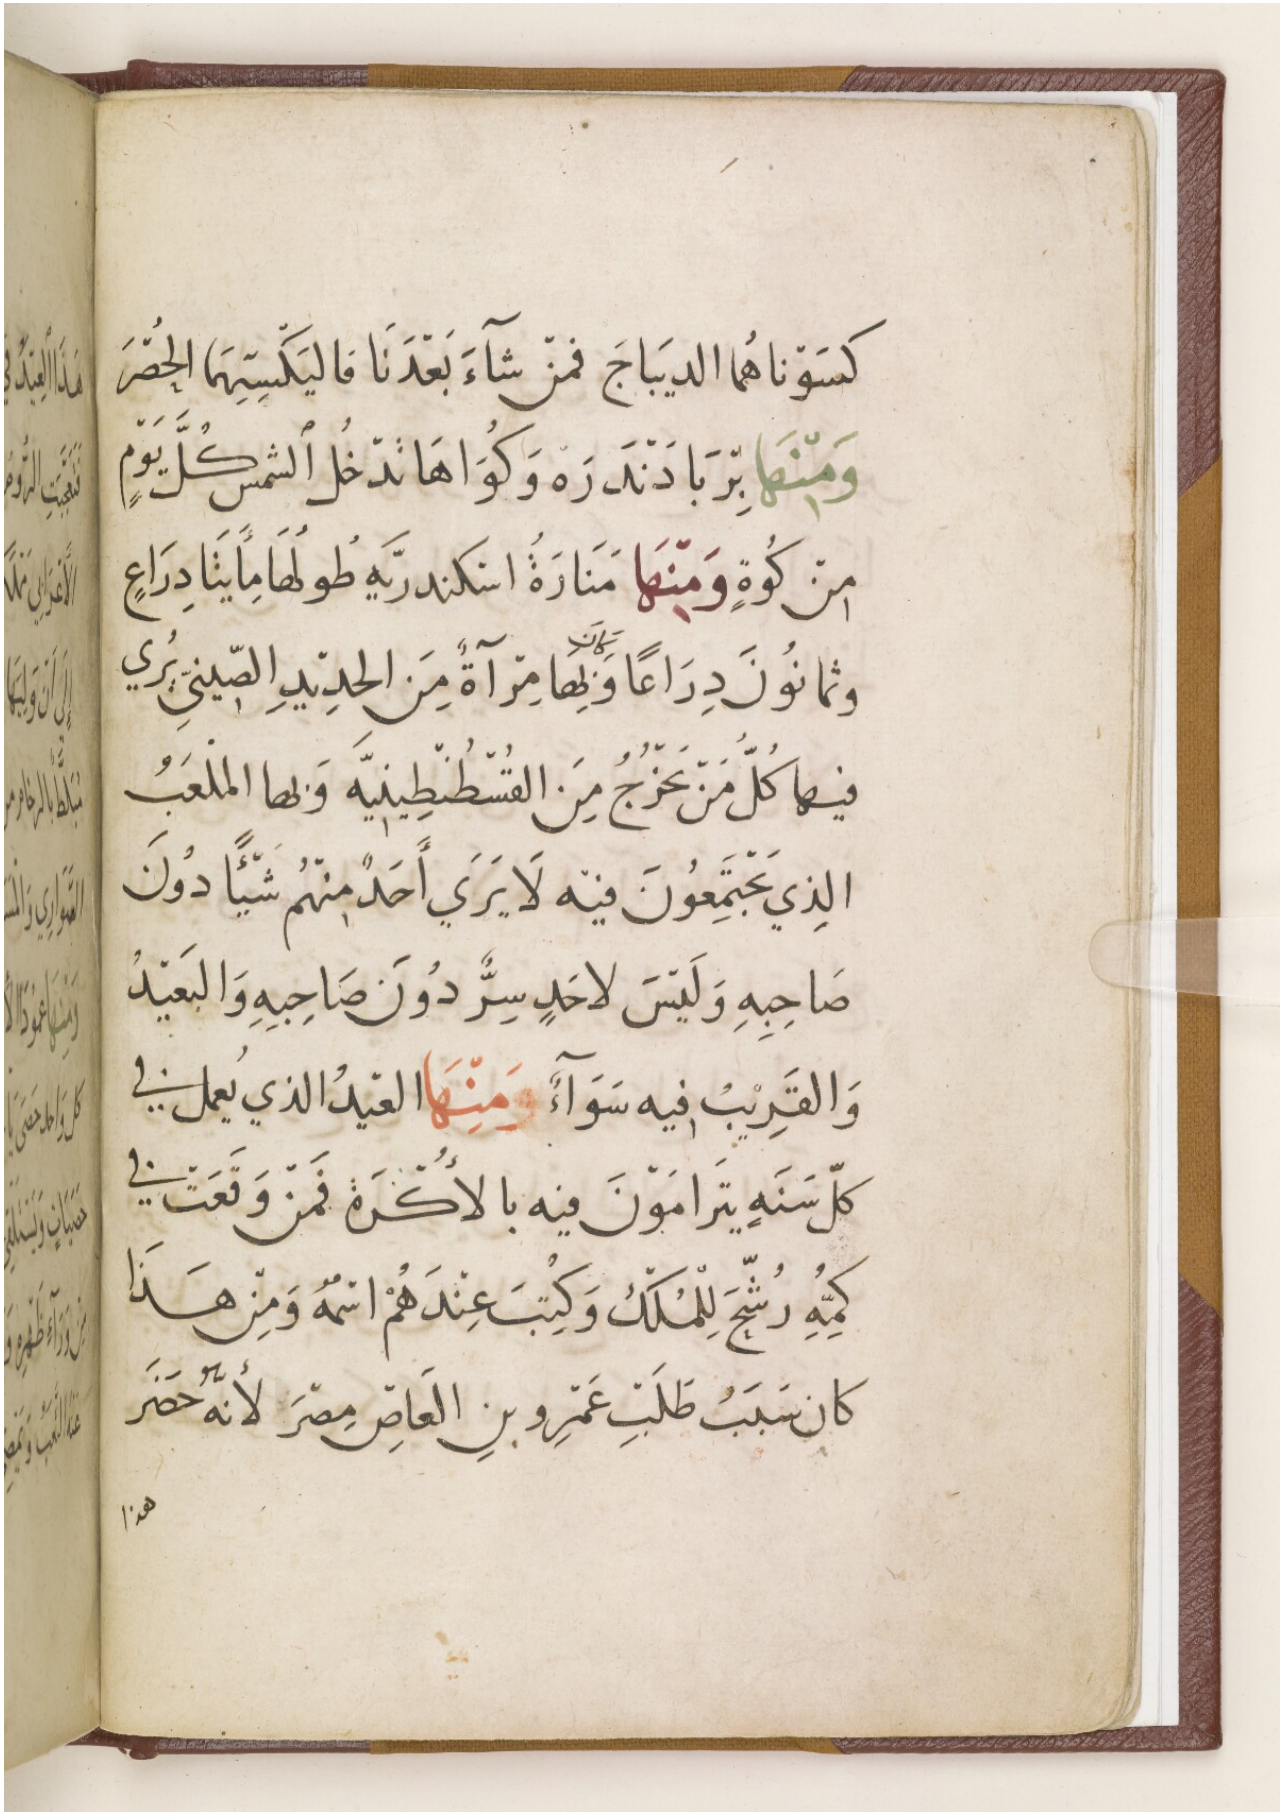 كَسَوْناهُما الديَباجَ فمَنْ شآءَ بَعْدَنَا فاليَكْسِيِهِمَا الحُصْرَ
وَمِنْهَا بِرْبَا دَنْدَرَهْ وَكُوَاهَا تدْخُل ٱلشمس كُلَّ يَوْمٍ
مِنْ كُوةٍ وَمِنْهَا مَنَارَةُ اسكندريَّهِ طُولُهَا مِأَيتَا دِرَاعٍ
وثمانُونَ دِرَاعًا وَكان بِهَا مِرْآةٌ مِنَ الحدِيْدِ الصِّينيِّ يُرِي
فيها كُلُّ مَنْ يَخْرُجُ مِنَ القُسْطُنْطِينِيَّه وَبها المَلْعَبُ
الذِي يَجْتَمِعُونَ فيْه لَا يَرَي أَحَدٌ مِنْهُم شَيْئًا دُونَ
صَاحِبِهِ وَلَيْسَ لاحَدٍ سِرٌّ دُونَ صَاحِبِهِ وَالبَعيْدُ
وَالقَرِيْبُ فِيه سَوَآءٌ وَمِنْهَا العيْدُ الذي يُعمل في
كلّ سَنَهٍ يتَرامَوْنَ فيه بالأُكْرَةِ فَمَنْ وَقَعَتْ في
كمِّهِ رُشِّحَ لِلْمُلْكْ وَكُتِبَ عِنْدَهُمْ اسْمُهُ وَمِنْ هَذَا
كان سَبَبُ طَلَبِ عَمْرِو بنِ العَاصِ مِصْرَ لأنهُ حَضَرَ
هذا